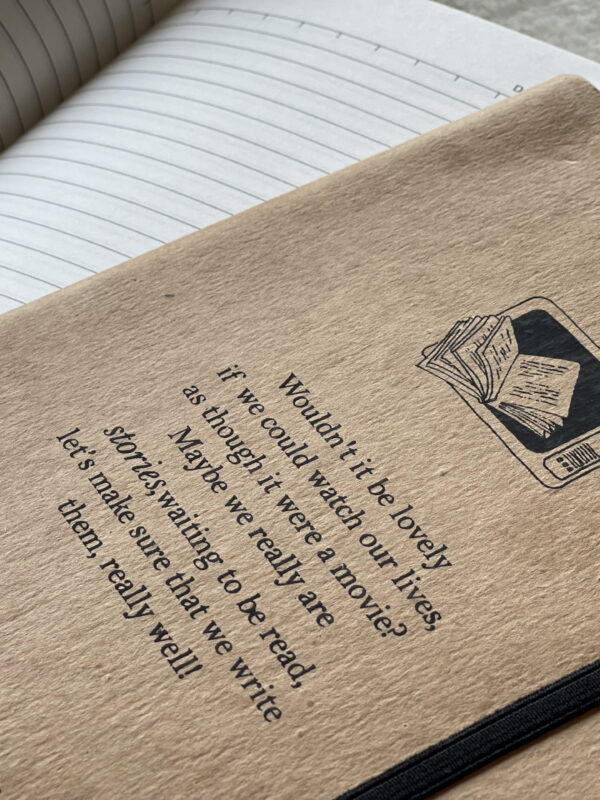 Wouldn't it be lovely
if we could watch our lives,
as though it were a movie?
Maybe we really are
stories, waiting to be read,
let's make sure that we write
them, really well!
D